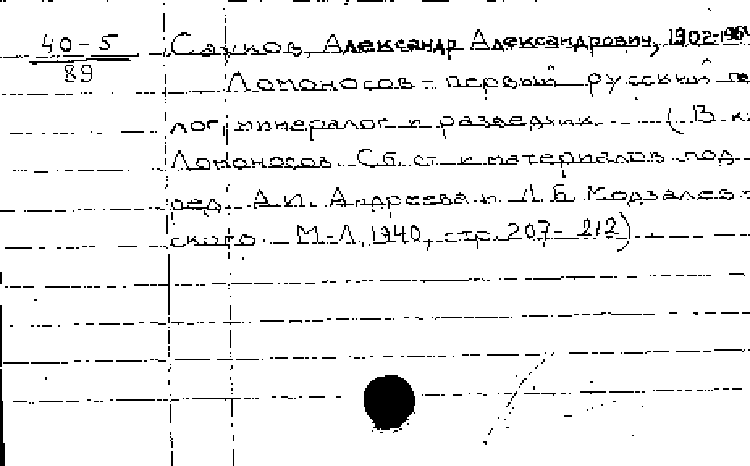 40-5
89
Сауков, Александр Александрович, 1902-1964
Ломоносов - первый русский гео
лог, минералог и разведчик. (В к
Ломоносов. Сб. ст. и материалов под
ред. А.И. Андреева и Л.Б. Модзалев-
ского. М-Л, 1940, стр. 207-212)